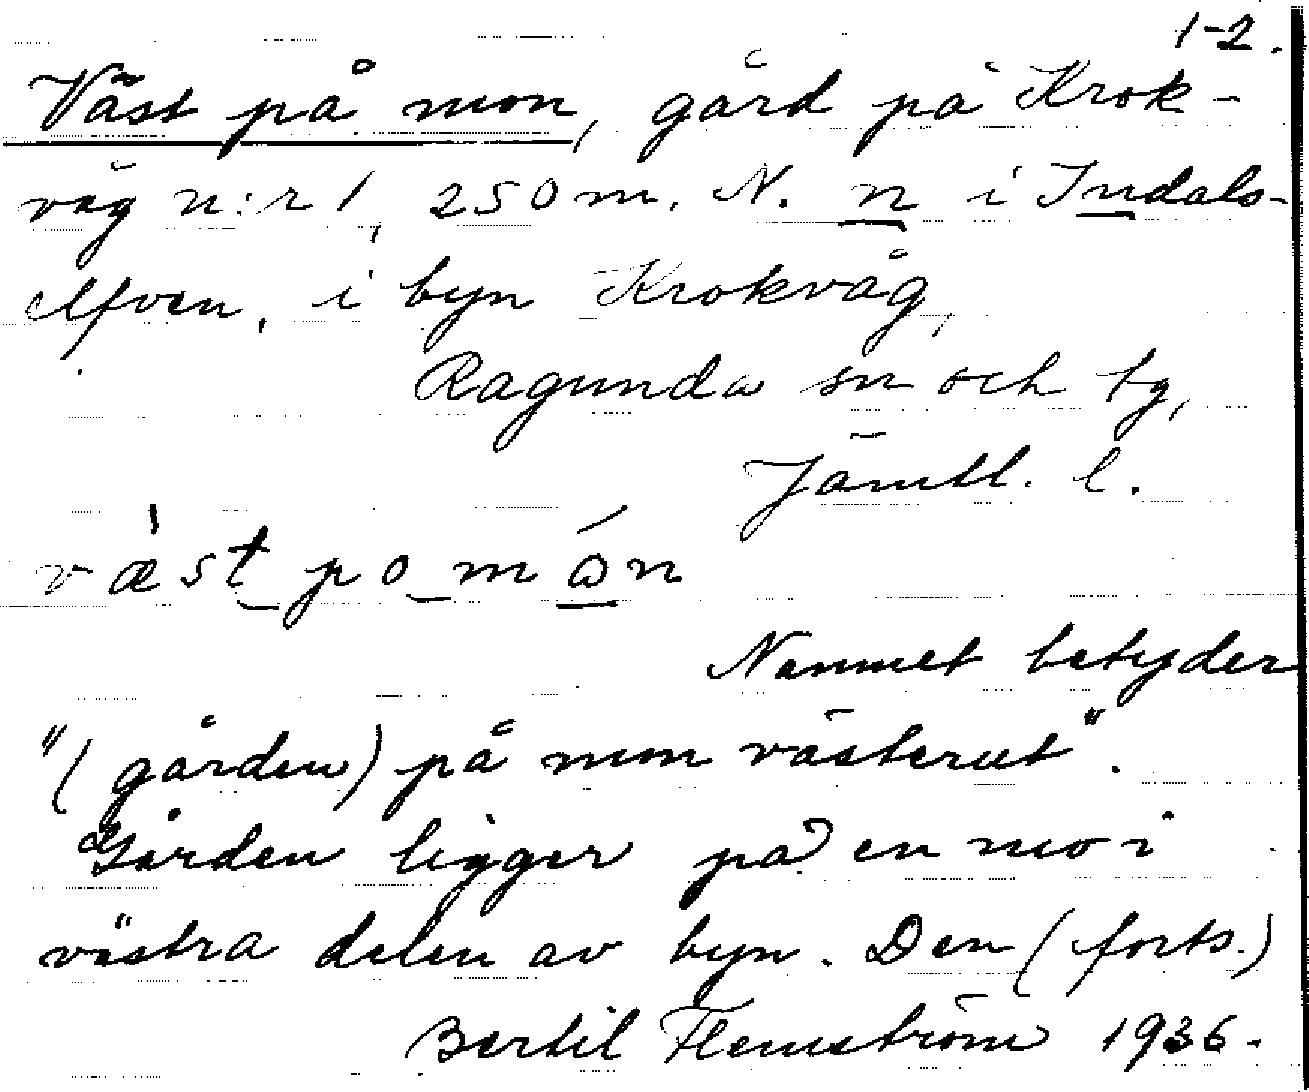 1-2.
Väst på mon, gård på Krok-
våg n:r 1, 250 m. N. n i Indals-
älven, i byn Krokvåg,
Ragunda sn och tg,
Jämtl. l.
væ̀st po mó̱n
Namnet betyder
"(gården) på mon västerut".
Gården ligger på en mo i
västra delen av byn. Den (forts.)
Bertil Flemström 1936.